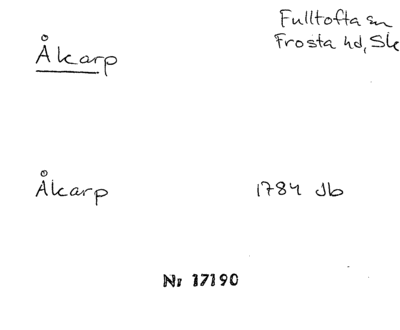 Åkarp
Fulltofta sn
Frosta hd, Sk
Åkarp
1784 Jb
Nr 17190